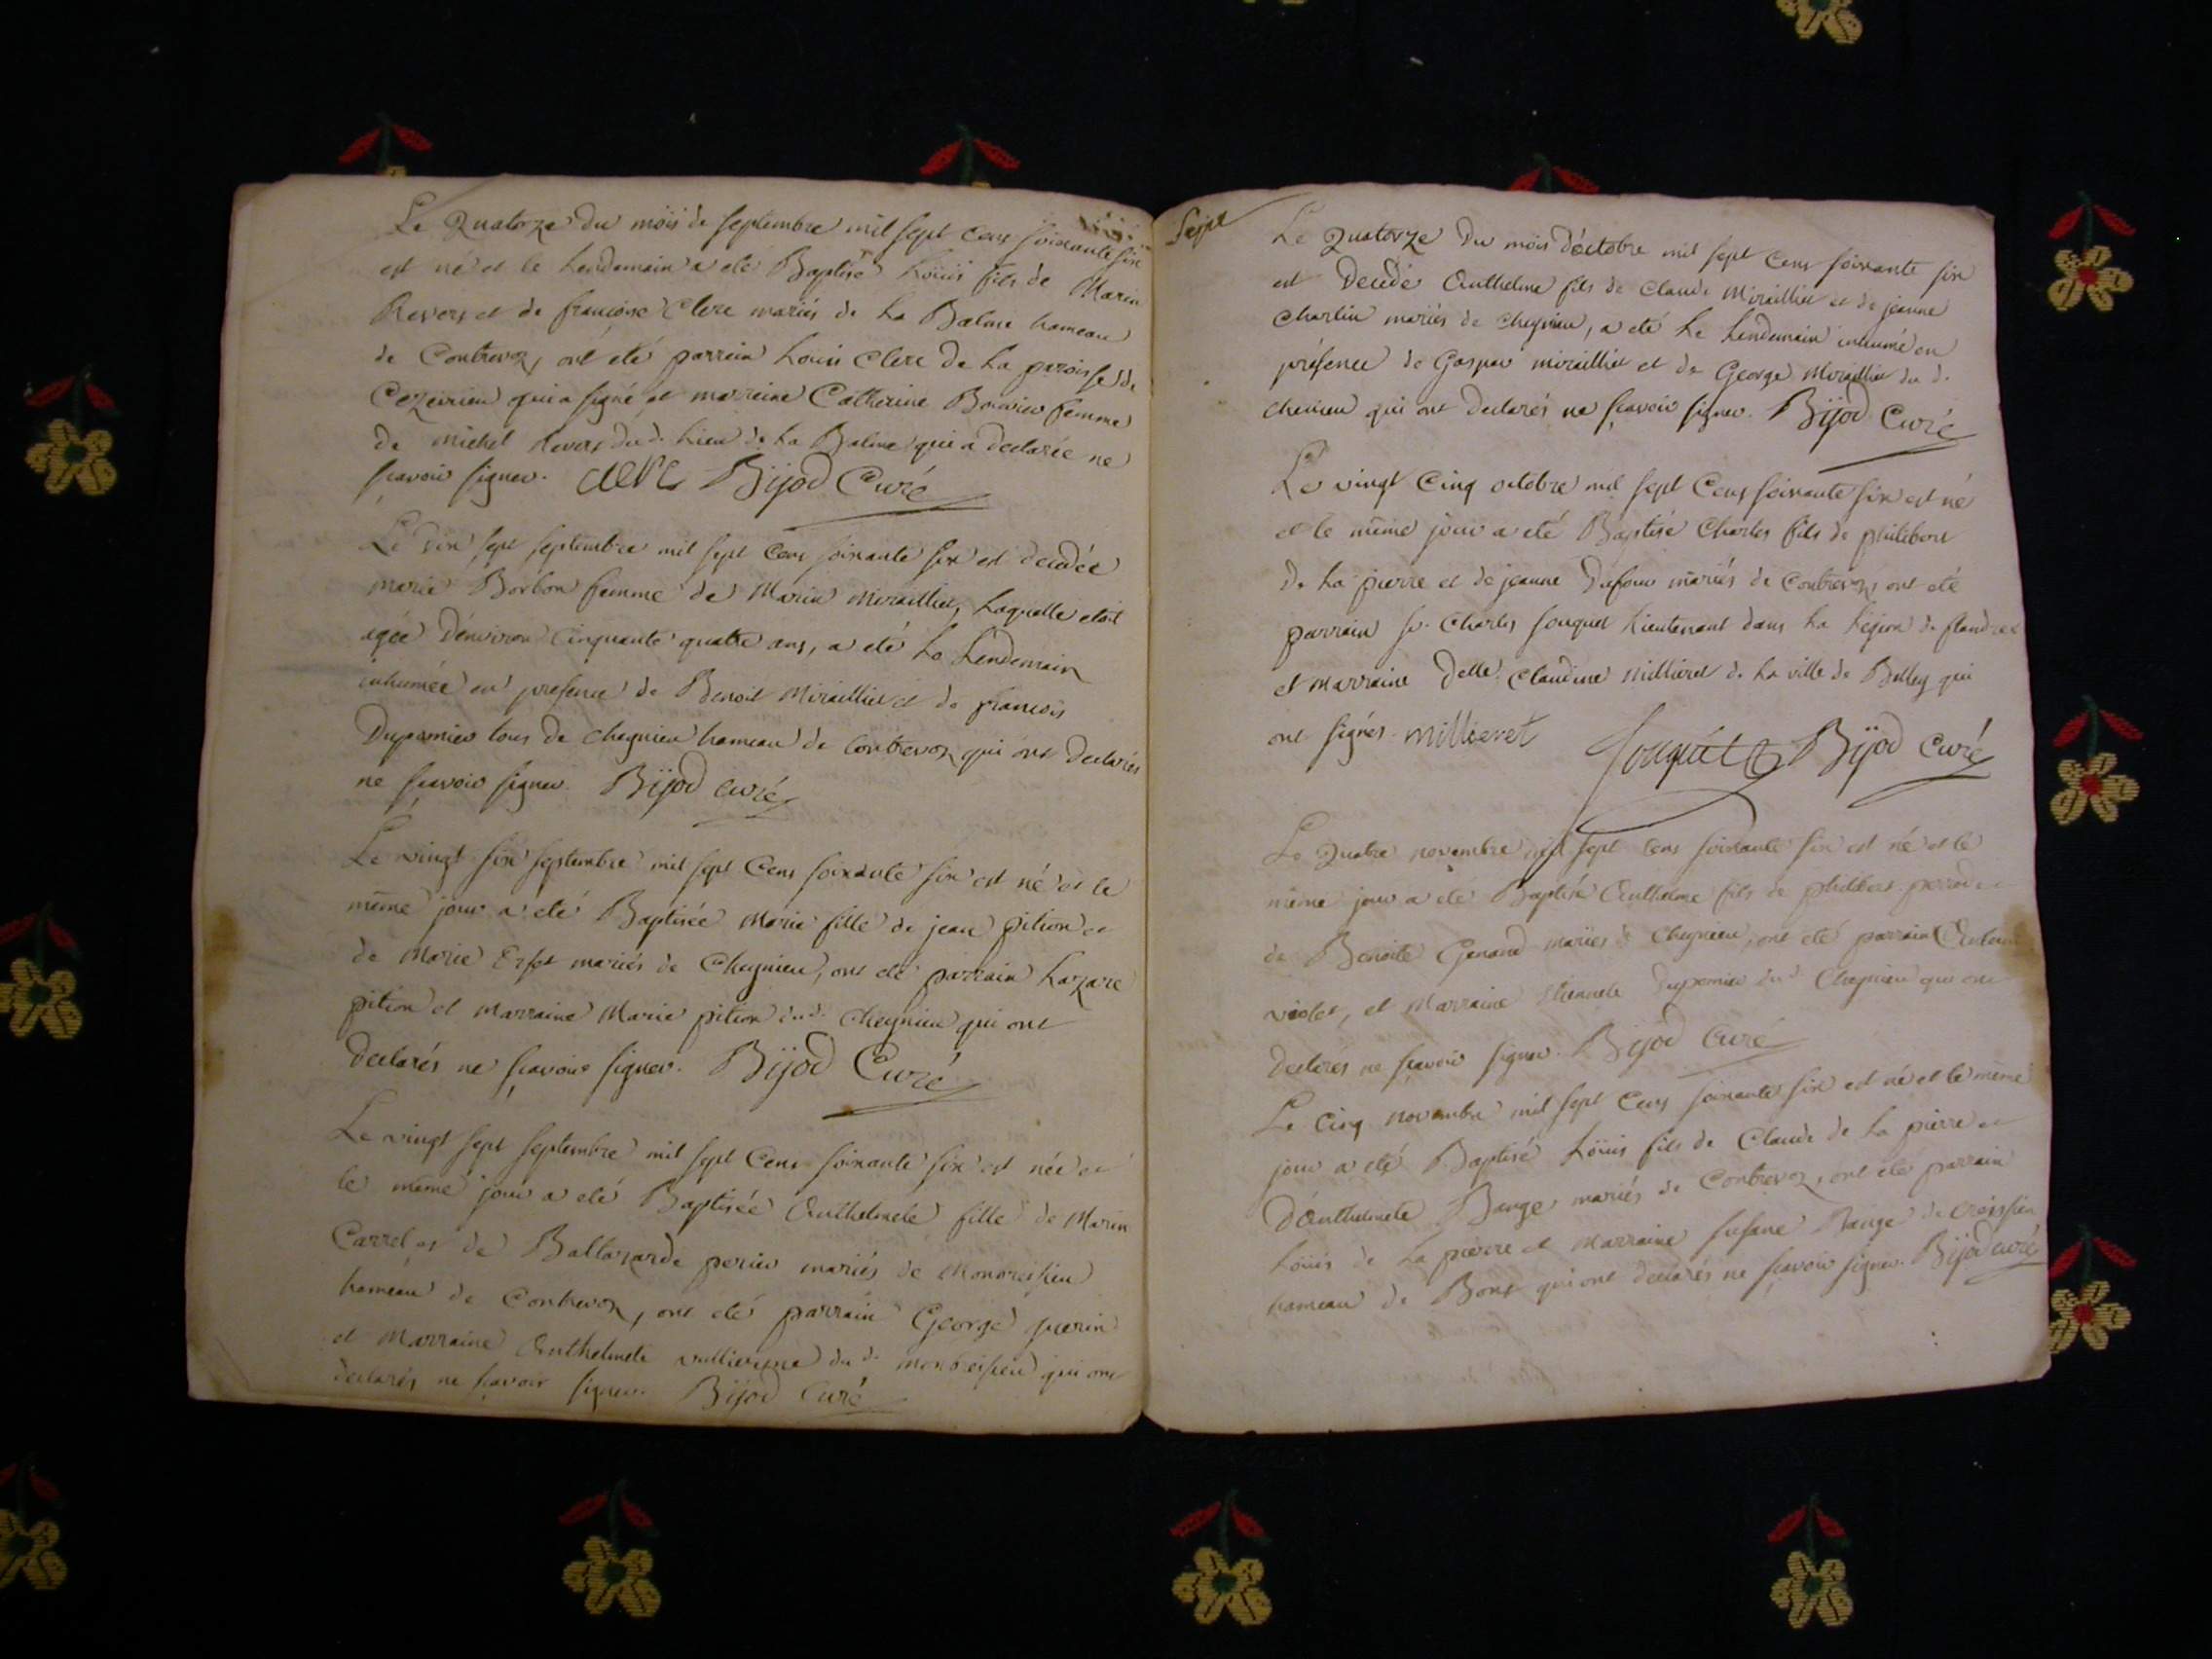 Le Quatorze du mois de septembre mil sept cens soixante six
est né et le Lendemain a eté Baptisé Loüis fils de Marin
Revers et de françoise Clerc mariés de La Balme hameau
de Contrevoz, ont été parrein Louis Clerc de La paroisse de
Cezeirieu qui a signé et marreine Catherine Bouvier femme
de michel Revers du d. Lieu de La Balme qui a declarée ne
scavoir signer. Clerc Bijod Curé
Le dix sept septembre mil sept cens soixante six est decedée
marie Borbon femme de Marin miraillet, Laquelle etoit
agée d'environ cinquante quatre ans, a eté Le Lendemain
inhumée en presence de Benoit Miraillet et de françois
Dupomier tous de cheynieu hameau de Contrevoz qui ont declarés
ne scavoir signer. Bijod curé
Le vingt six septembre mil sept cens soixante six est né et le
même jour a eté Baptisée Marie fille de jean pition et
de Marie mariés de Cheynieu, ont eté parrain Lazare
pition et Marraine Marie pition du d. Cheynieu qui ont
declarés ne scavoir signer. Bijod Curé
Le vingt sept septembre mil sept cens soixante six est née et
le même jour a eté Baptisée Anthelmete fille de Marin
Carrel et de Baltazarde perier mariés de
hameau de Contrevoz, ont eté parrain George
et Marraine Anthelmete du d. qui ont
declarés ne scavoir signer. Bijod Curé
Sept
Le Quatorze du mois d'octobre mil sept cens soixante six
est decedé Anthelme fils de Claude Miraillet et de jeanne
Charlin mariés de cheynieu, a eté Le Lendemain inhumé en
présence de Gaspar miraillet et de George Miraillet du d.
cheinieu qui ont declarés ne scavoir signer. Bijod Curé
Le vingt Cinq octobre mil sept cens soixante six est né
et le même jour a eté Baptisé Charles fils de philibert
De La pierre et de jeanne Dufour mariés de Contrevoz, ont eté
parrain sr. Charles fouquet Lieutenant dans La Legion de flandres
et Marraine Delle. Claudine Millieret de La ville de Belley qui
ont signés. millieret fouquet Bijod Curé
Le Quatre novembre mil sept cens soixante six est né et le
même jour a eté Baptisé Anthelme fils de philibert et
de Benoite Genand mariés de Cheynieu, ont eté parrain
violet, et Marraine Dupomier du d. Cheynieu qui ont
declarés ne scavoir signer. Bijod Curé
Le Cinq novembre mil sept cens soixante six est né et le même
jour a eté Baptisé Loüis fils de Claude de La pierre et
D'Anthelmete Bange mariés de Contrevoz, ont eté parrain
Loüis de La pierre et Marraine susane Bange de
hameau de Bons qui ont declarés ne scavoir signer. Bijod curé